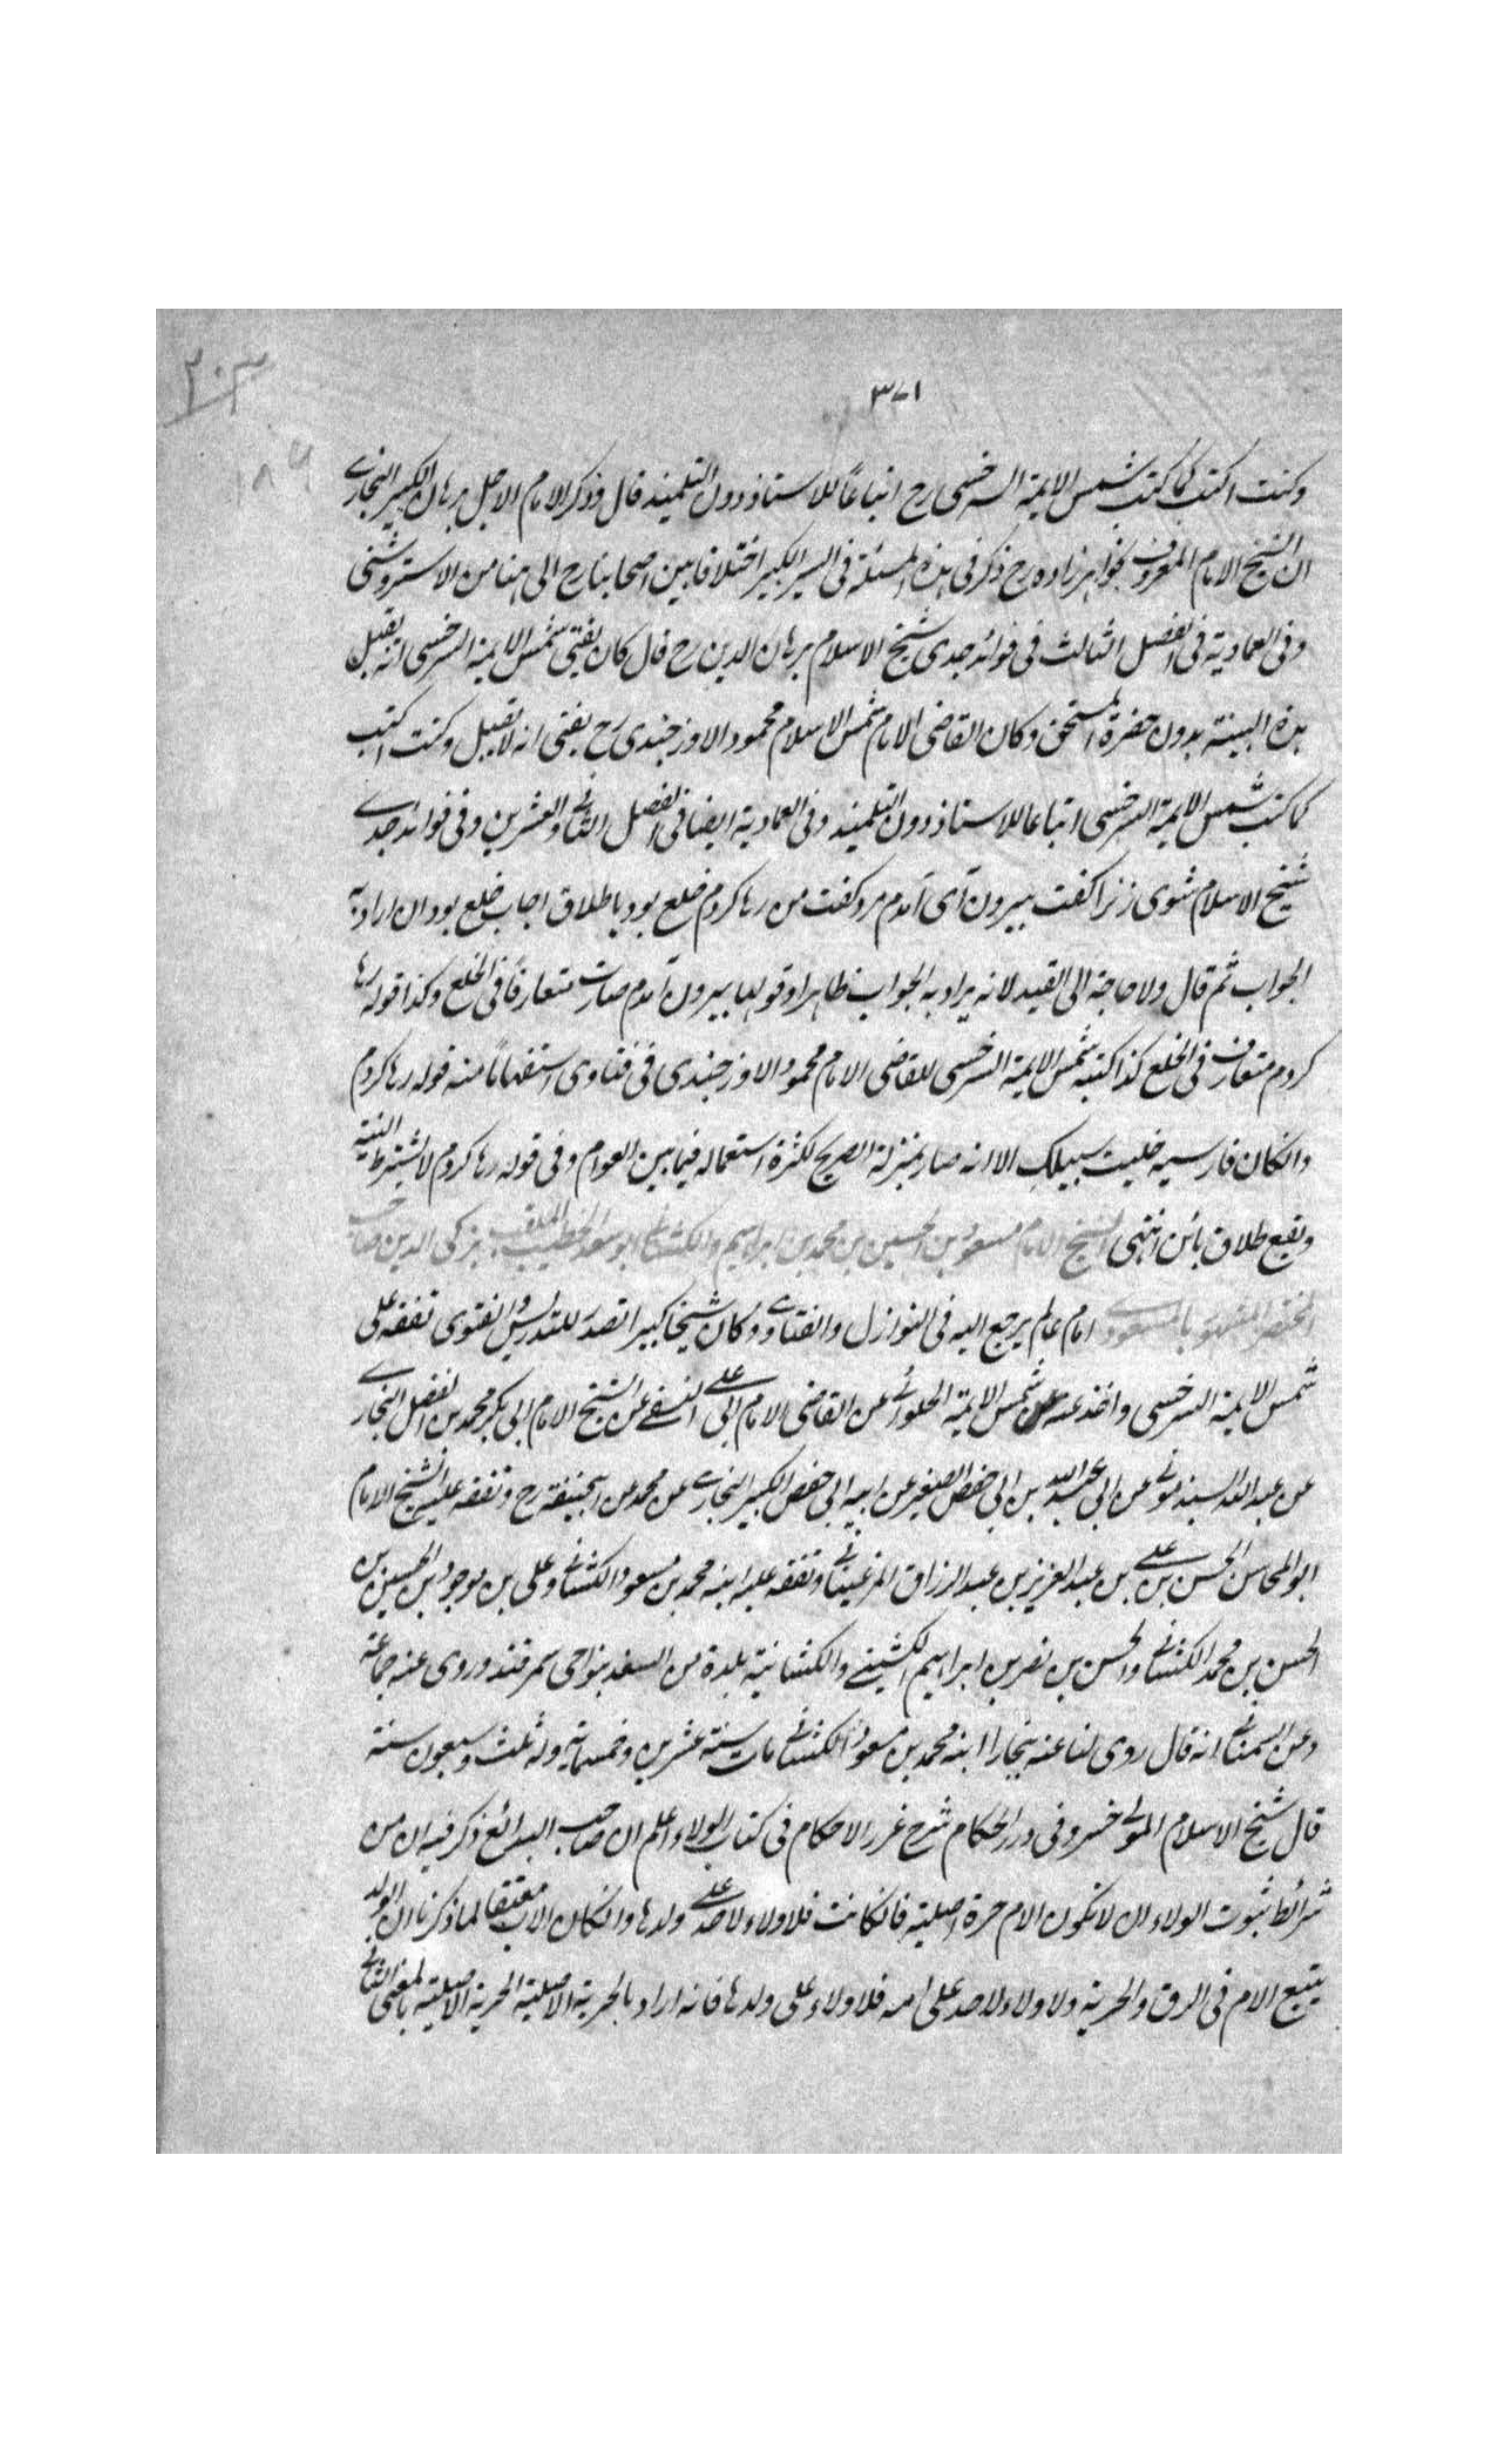 ٢٠٣
٣٧١
١٨٩
وكنت اكتب كما كتب شمس الايمة السرخسى رح اتباعاً للاستاذ دون التلميذ قال وذكر الامام الاجل برهان الكبير البخارى
ان الشيخ الامام المعروف بخواهرزاده رح ذكر فى هذه المسئلة فى السير الكبير اختلافا بين اصحابنا رح الى هنا من الاستروشنى
وفى العمادية فى الفصل الثالث فى فوائد جدى شيخ الاسلام برهان الدين رح قال كان يفتى شمس الايمة السرخسى انه يقبل
هذه البينة بدون حضرة المستحق وكان القاضى الامام شمس الاسلام محمود الاوزجندى رح يفتى انه لا يقبل وكنت اكتب
كما كتب شمس الايمة السرخسى اتباعا للاستاذ دون التلميذ وفى العمادية ايضا فى الفصل الثانى والعشرين وفى فوائد جدى
شيخ الاسلام شوى زنرا كفت بيرون آى آمدم مرد كفت من رها كردم خلع بود يا طلاق اجاب خلع بود ان اراد به
الجواب ثم قال ولا حاجة الى القيد لانه يراد به الجواب ظاهرا وقولها بيرون آمدم صارت متعارفاً فى الخلع وكذا قوله رها
كردم متعارف فى الخلع كذا كتبه شمس الايمة السرخسى للقاضى الامام محمود الاوزجندى فى فتاوى استفهاماً منه قوله رها كردم
وانكان فارسيه خليت سبيلك الا انه صار بمنزلة الصريح لكثرة استعماله فيما بين العوام وفى قوله رها كردم لا يشترط النية
ويقع طلاق بائن انتهى الشيخ الامام مسعود بن الحسين بن محمد بن ابراهيم الكشانى ابو سعد الخطيب الملقب بزكى الدين صاحب
المختصر المشهور بالمسعودى امام عالم يرجع اليه فى النوازل والفتاوى وكان شيخا كبيرا تصدر للتدريس والفتوى تفقه على
شمس الايمة السرخسى واخذ عنه عن شمس الايمة الحلوائى عن القاضى الامام ابى على النسفى عن الشيخ الامام ابى بكر محمد بن الفضل البخارى
عن عبد الله السبذمونى عن ابى عبد الله بن ابى حفص الصغير عن ابيه ابى حفص الكبير البخارى عن محمد عن ابيحنيفة رح وتفقه عليه الشيخ الامام
ابو المحاسن الحسن بن على بن عبد العزيز بن عبد الرزاق المرغينانى وتفقه عليه ابنه محمد بن مسعود الكشانى وعلى بن موجود بن الحسين بن
الحسن بن محمد الكشانى والحسن بن نصر بن ابراهيم الكشينى والكشانية بلدة من السغد بنواحى سمرقند وروى عنه جماعة
وعن السمعانى انه قال روى لنا عنه ببخارا ابنه محمد بن مسعود الكشانى مات سنة عشرين وخمسماية وله ثلث وسبعون سنة
قال شيخ الاسلام المولى خسرو فى درر الحكام شرح غرر الاحكام فى كتاب الولاء اعلم ان صاحب البدائع ذكر فيه ان من
شرائط ثبوت الولاء ان لا تكون الام حرة اصلية فانكانت فلا ولاء لاحد على ولدها وانكان الاب معتقا لما ذكرنا ان الولد
يتبع الام فى الرق والحرية ولا ولاء لاحد على امه فلا ولاء على ولدها فانه اراد بالحرية الاصلية الحرية الاصلية بالمعنى الثانى